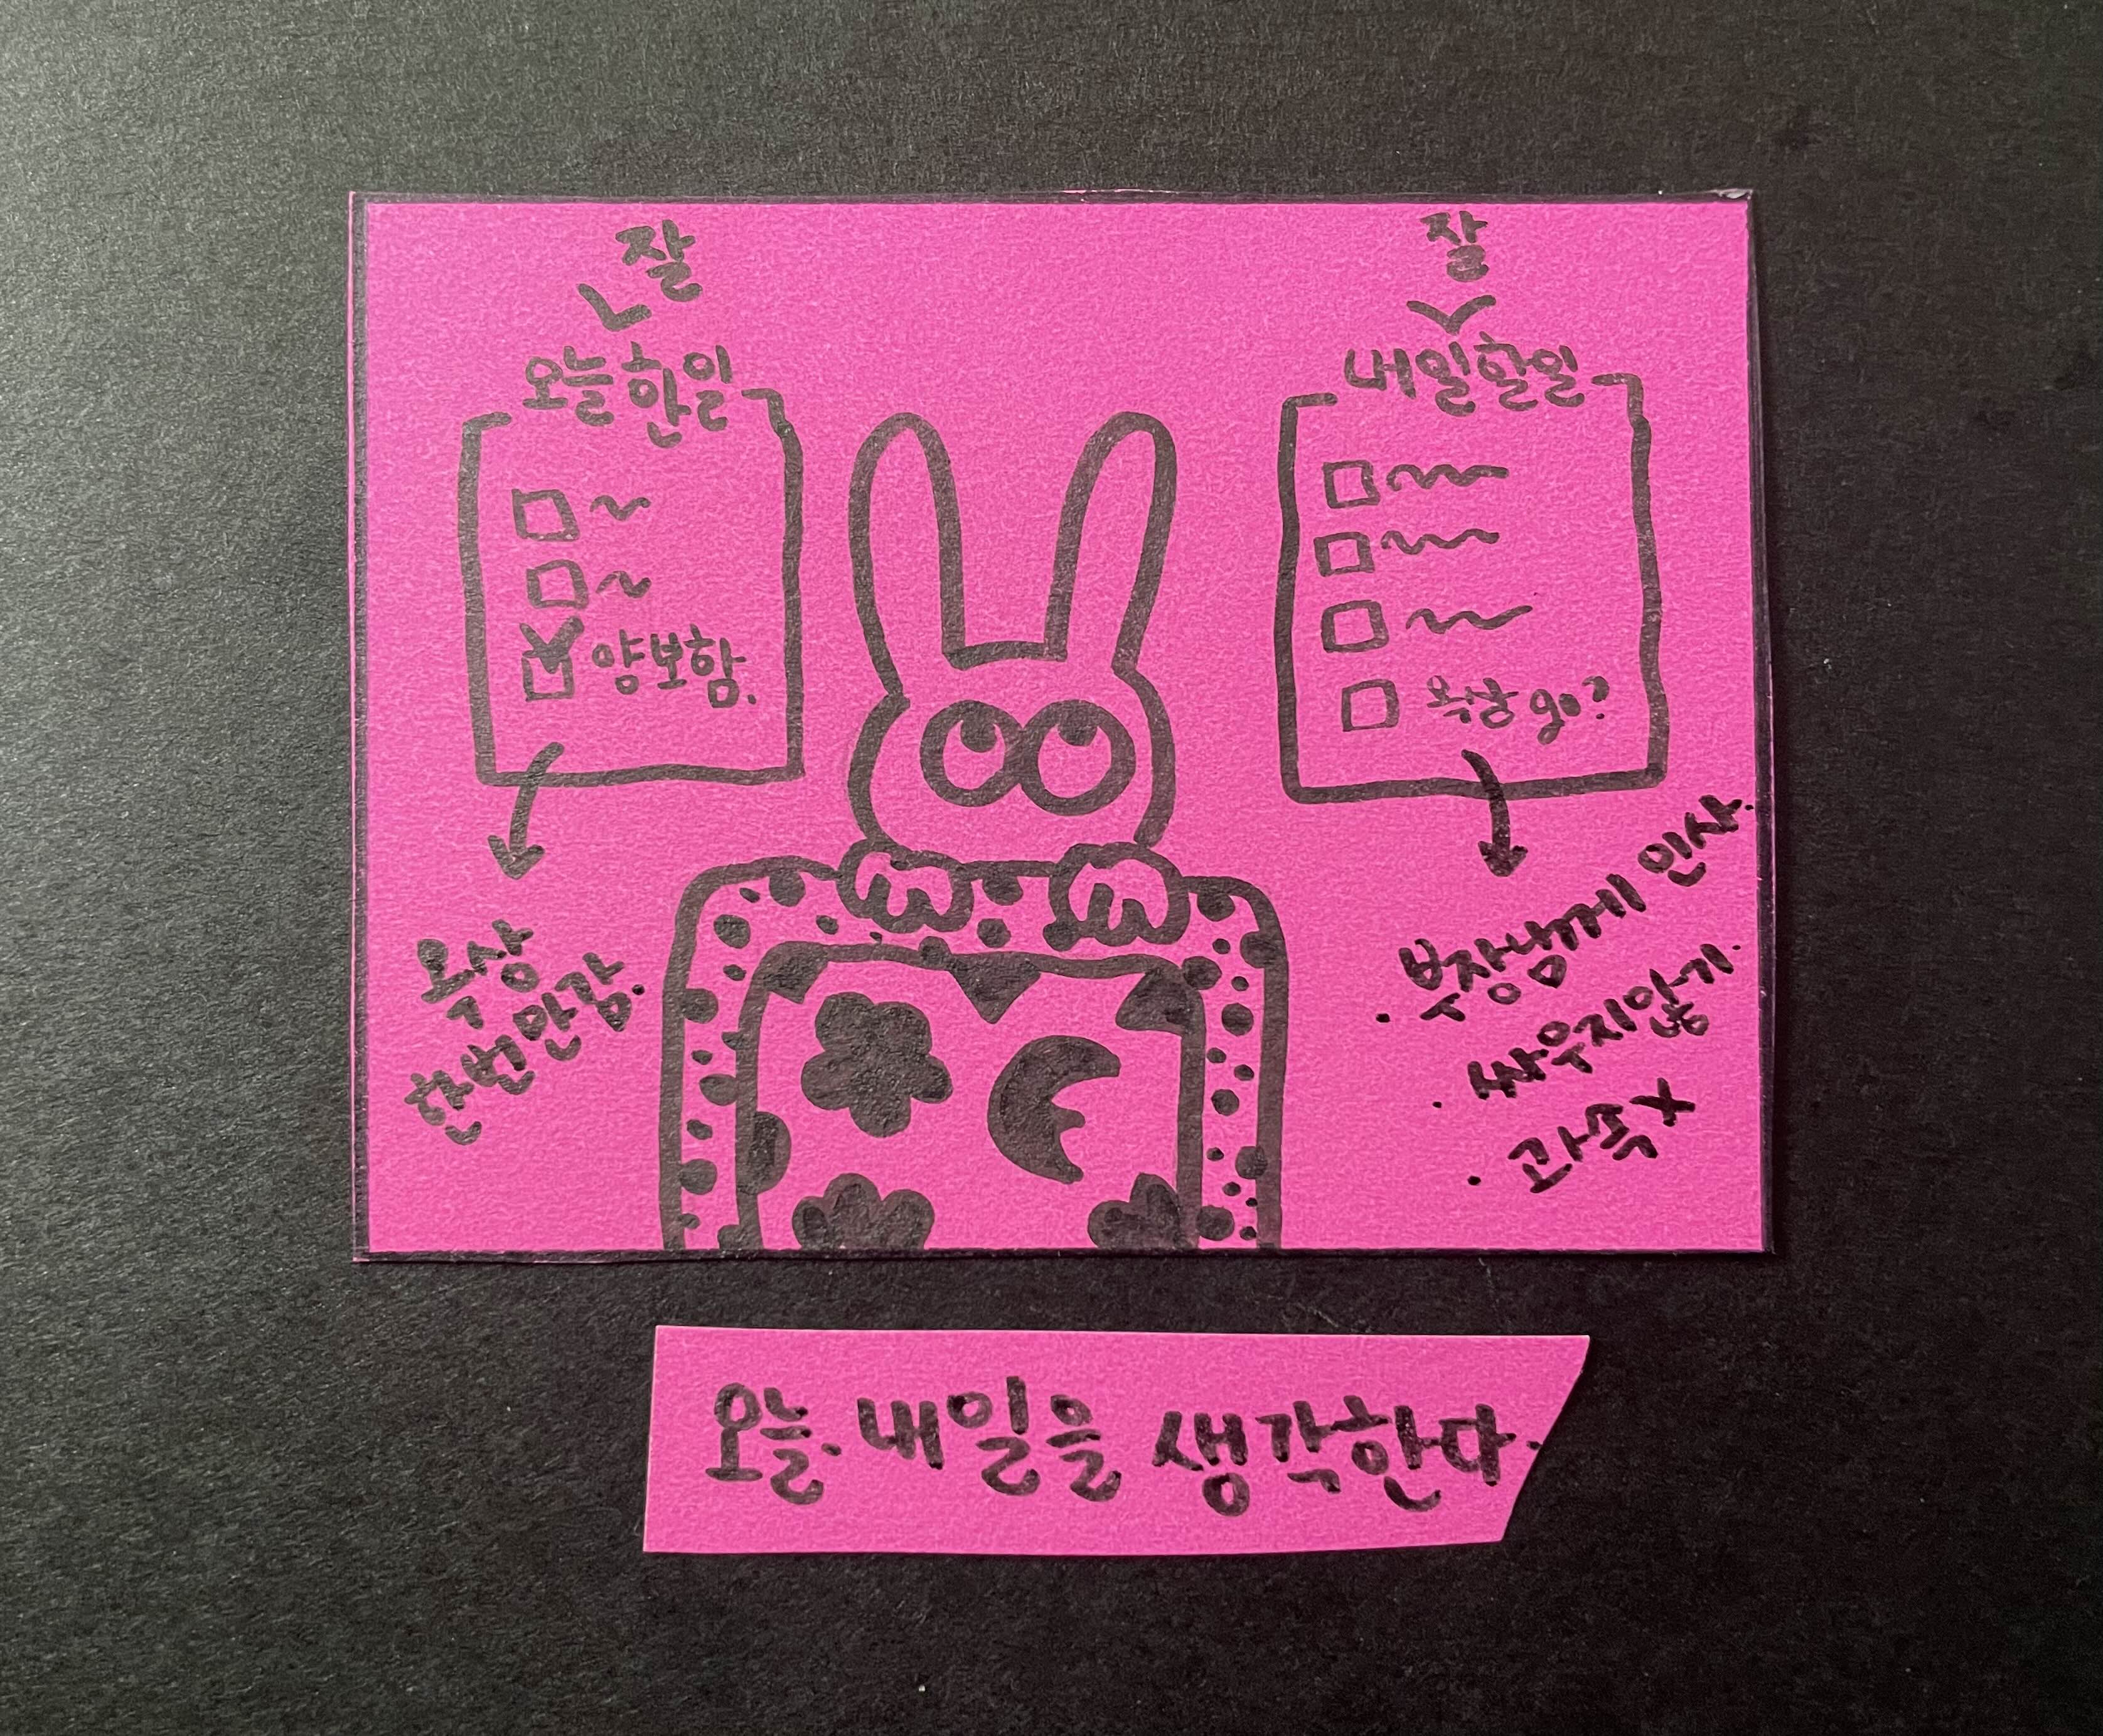 잘
오늘 한일
양보함.
옥상
한번만감.
잘
내일할일
옥상 go?
· 부장님께 인사.
· 싸우지않기.
· 과속 X
오늘. 내일을 생각한다.